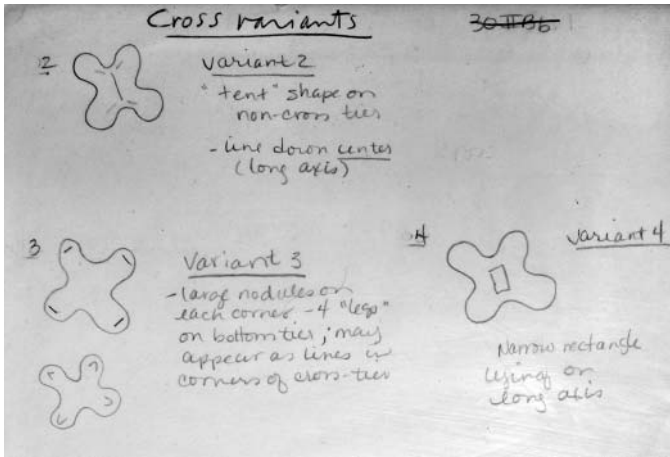 Cross variants
2
variant 2
"tent" shape on
non-cross ties
- line down center
(long axis)
3
Variant 3
- large nodules on
each corner - 4 "legs"
on bottom tier; may
appear as lines in
corners of cross-tier
4
variant 4
Narrow rectangle
lying on
long axis